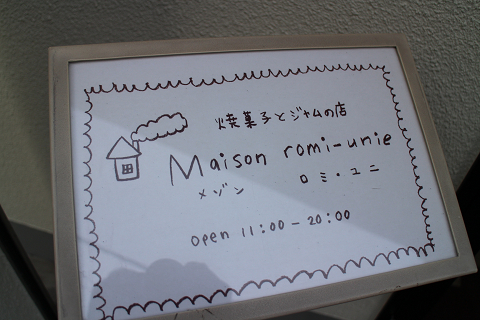 焼菓子とジャムの店
Maison romi-unie
メゾン ロミ・ユニ
open 11:00 - 20:00